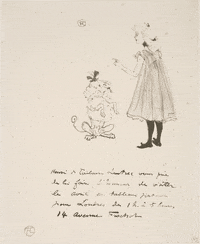 Henri de Toulouse Lautrec vous prie
de lui faire l'honneur de visiter
le avril ses tableaux
pour Londres de 1h à 5 heures.
14 Avenue Frochot